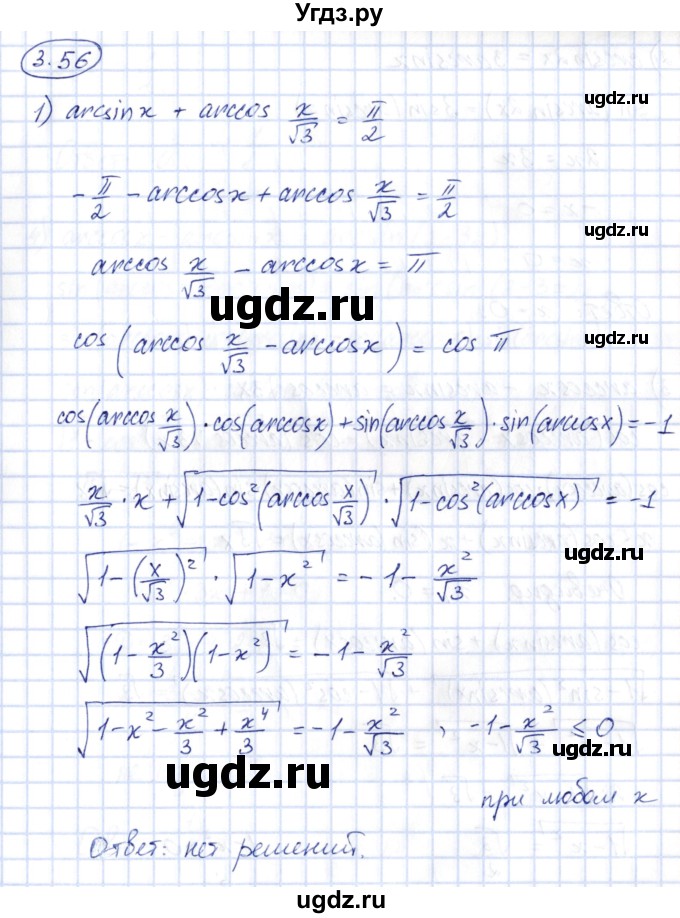 Угдз.ру
3.56
1) arcsinx + arccos x/√3 = π/2
ugdz.ru
-π/2 - arccosx + arccos x/√3 = π/2
ugdz.ru
arccos x/√3 - arccosx = π
ugdz.ru
cos(arccos x/√3 - arccosx) = cos π
ugdz.ru
cos(arccos x/√3)·cos(arccosx)+sin(arccos x/√3)·sin(arccosx)=-1
ugdz.ru
x/√3 · x + √(1-cos²(arccos x/√3)) · √(1-cos²(arccosx)) = -1
√(1-(x/√3)²) · √(1-x²) = -1 - x²/√3
ugdz.ru
√((1-x²/3)(1-x²)) = -1 - x²/√3
√(1-x²-x²/3+x⁴/3) = -1-x²/√3 , -1-x²/√3 ≤ 0
ugdz.ru
ugdz.ru
при любом x
Ответ: нет решений.
ugdz.ru
ugdz.ru